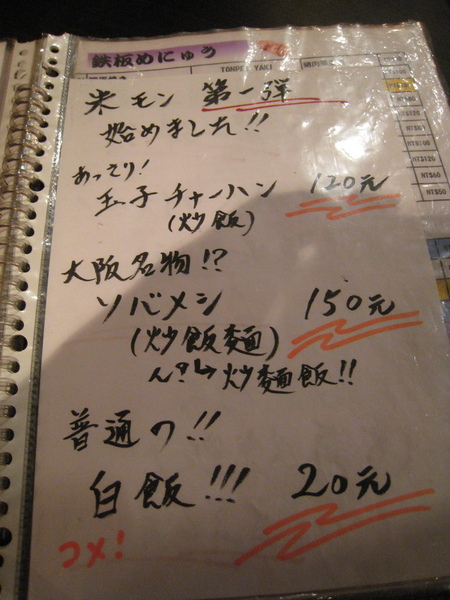 鉄板めにゅう
TONPEI YAKI
米モン 第一弾
始めました!!
あっさり!
玉子チャーハン 120元
(炒飯)
大阪名物!?
ソバメシ 150元
(炒飯麵)
ん?↳炒麵飯!!
普通の!!
白飯!!! 20元
コメ!
NT$120
NT$120
NT$60
NT$50